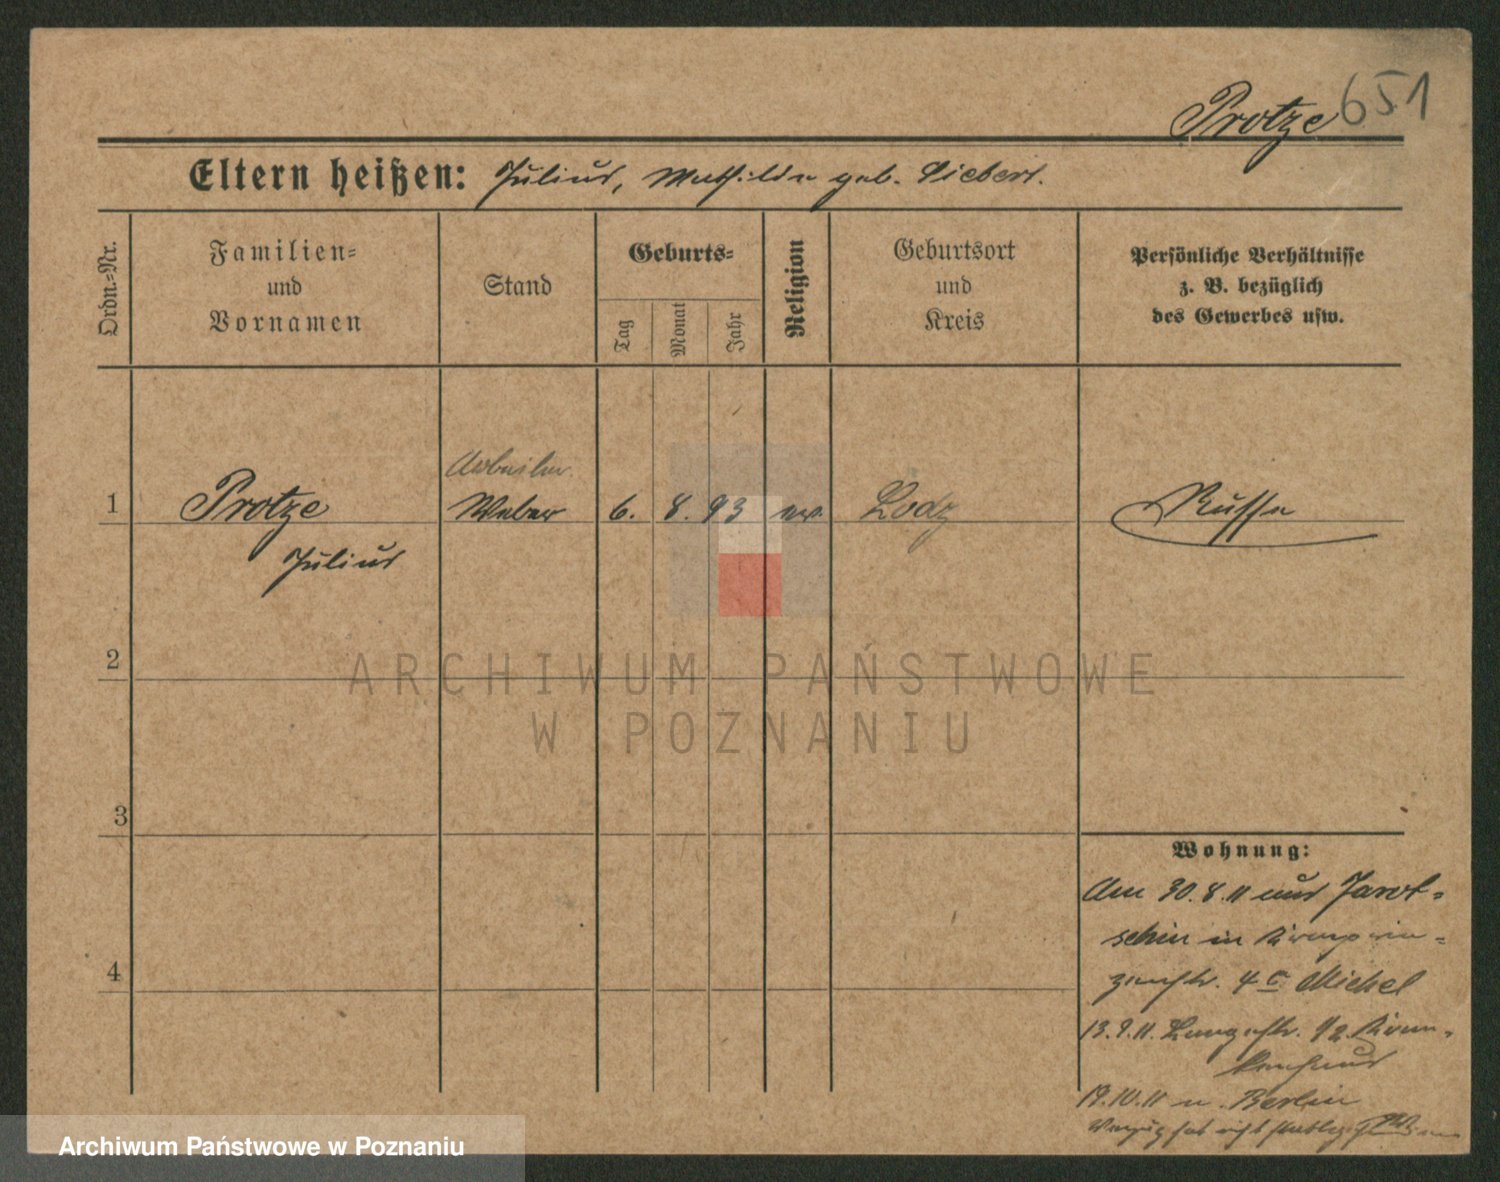 Protze 651
Eltern heißen: Julius, Mathilde geb. Siebert.
Ordn.-Nr.
Familien-
und
Vornamen
Stand
Geburts-
Tag
Monat
Jahr
Religion
Geburtsort
und
Kreis
Persönliche Verhältnisse
z. B. bezüglich
des Gewerbes usw.
Arbeiter
1 Protze Weber 6. 8. 93 ev. Lodz Russe
Julius
2
ARCHIWUM PAŃSTWOWE
W POZNANIU
3
Wohnung:
Am 30.8.11 aus Jarot-
schin in Kronprin-
zenstr. 4 c Michel
4
13.9.11. Langestr. 1/2. Kran-
kenhaus
19.10.11 n. Berlin
Umzug hat nicht
Archiwum Państwowe w Poznaniu